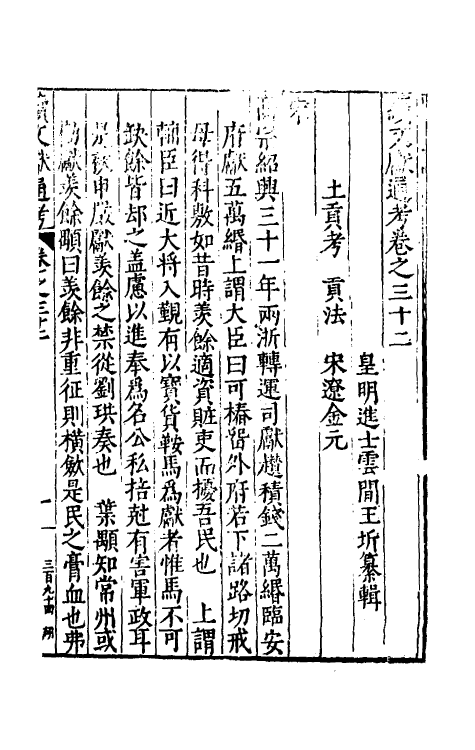 續文獻通考卷之三十二
皇明進士雲間王圻纂輯
土貢考 貢法 宋遼金元
宋
高宗紹興三十一年兩浙轉運司獻趲積錢二萬緡臨安
府獻五萬緡上謂大臣曰可樁留外府若下諸路切戒
毋得科敷如昔時羨餘適資贓吏而擾吾民也 上謂
輔臣曰近大將入覲有以寶貨鞍馬爲獻者惟馬不可
缺餘皆却之盖慮以進奉爲名公私掊尅有害軍政耳
是歲申嚴獻羨餘之禁從劉珙奏也 葉顒知常州或
勸獻羨餘顒曰羨餘非重征則橫歛是民之膏血也弗
續文獻通考 卷之三十二 一 三百九十四